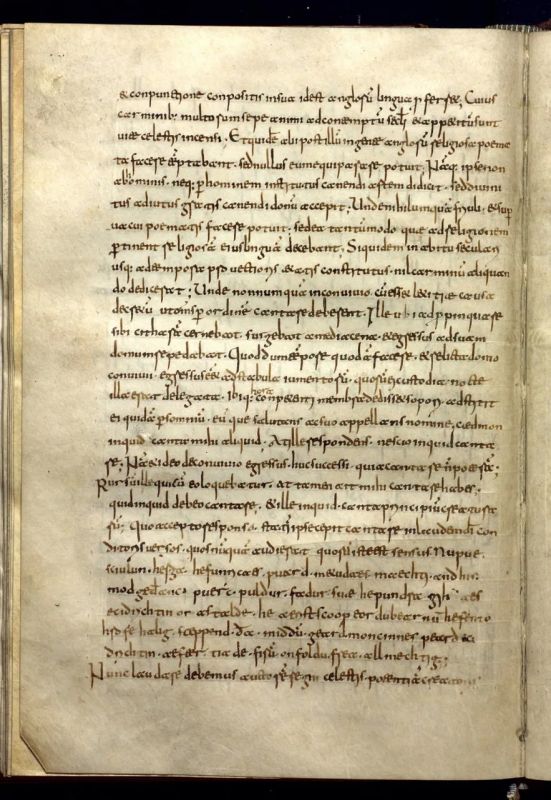 & conpunctione conpositis in sua id est anglorū lingua pferret; Cuius
carminib; multorum sepe animi ad contemptū scli & appetitū sunt
uitae celestis incensi; Et quidē alii post illū in gente anglorū religiosa poema
ta facere temptabant. sed nullus eum equiparare potuit; Naq; ipse non
ab hominib; neq; p hominem institutus canendi artem didicit. sed diuini
tus adiutus gratis canendi donū accepit; Unde nihil umquā friuoli. & sup
uacui poematis facere potuit. sed ea tantūmodo que ad religionem
ptinent religiosā eius linguā decebant. Siquidem in abitu seculari
usq; ad tempora pro uectioris aetatis constitutus. nil carminū aliquan
do dedicerat; Unde non numquā in conuiuio. cū esset laetitiae causa
decretū ut omnis p ordinē cantare deberent. Ille ubi adppinquare
sibi citharā cernebat. surgebat a media cena. & egressus ad suam
domum repedabat. Quod dum tempore quodā faceret. & relicta domo
conuiuii egressus eēt ad stabula iumentorū. quorū ei custodia nocte
illa erat delegata. ibiq; hora conpetenti membra dedisset sopori. adstitit
ei quidā p somniū. eū que salutans ac suo appellans nomine. caedmon
inquid canta mihi aliquid. At ille respondens. nescio inquid canta
re; Nā & ideo de conuiuio egressus. huc successi. quia cantare nō poterā;
Rursū ille qui cū eo loquebatur. At tamen ait mihi cantare habes.
quid inquid debeo cantare. & ille inquid. canta principiū creatura
rū; Quo accepto responso. statī ipse cepit cantare in laudem dī con
ditoris uersos. quos nūquā audierat quorū iste est sensus Nu pue.
sciulun. herga. hefunricaes. puard. metudaes. maechti. and his.
modgedanci puerc. puldur. fadur. sue he pundra gih aes
eci drichtin or astalde. he aerist scoop eordu bearnū hefen to
hrofe halig. sceppend. da. middū. geard moncinnes peard eci
drichtin. aefter. tiade. firū. on foldu. frea. allmechtig;
Nunc laudare debemus auctorē regni celestis. potentiā creatoris